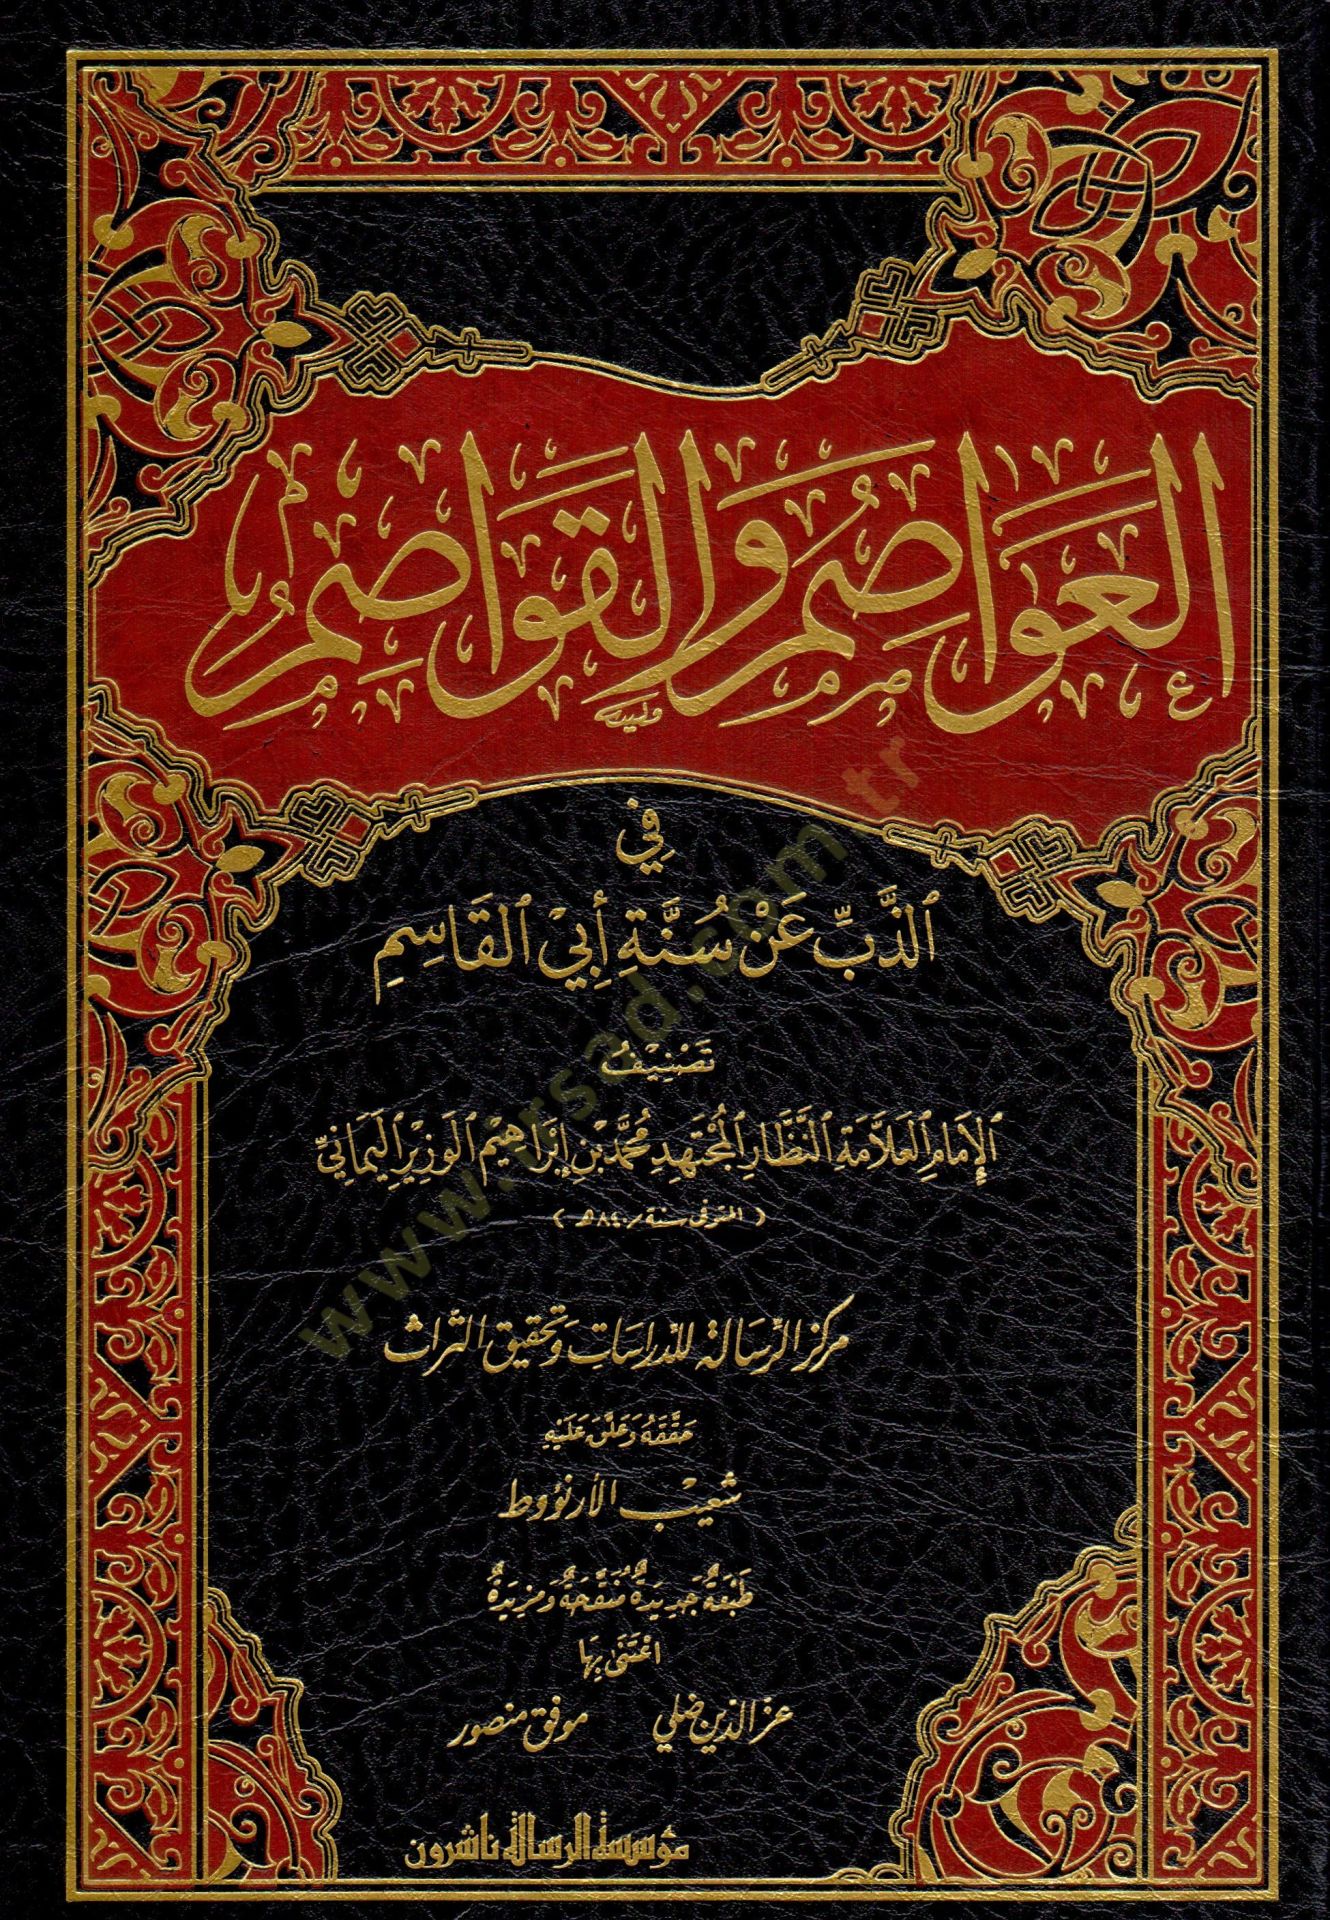 العَوَاصِمُ وَالقَوَاصِمُ
فِي
الذَّبِّ عَنْ سُنَّةِ أَبِي القَاسِمِ
تَصْنِيْفُ
الإِمَامِ العَلَّامَةِ النَّظَّارِ المُجْتَهِدِ مُحَمَّد بْنِ إِبْرَاهِيْم الوَزِيْرِ اليَمَانِيِّ
( المتوفى سنة ٨٤٠هـ )
مركز الرسالة للدراسات وتحقيق التراث
حَقَّقَهُ وَعَلَّقَ عَلَيْهِ
شعيب الأرنؤوط
طَبْعَةٌ جَدِيدَةٌ مُنَقَّحَةٌ وَمَزِيدَةٌ
اعْتَنَى بِهَا
عز الدين ضلي موفق منصور
مؤسسة الرسالة ناشرون
www.irsad.com.tr